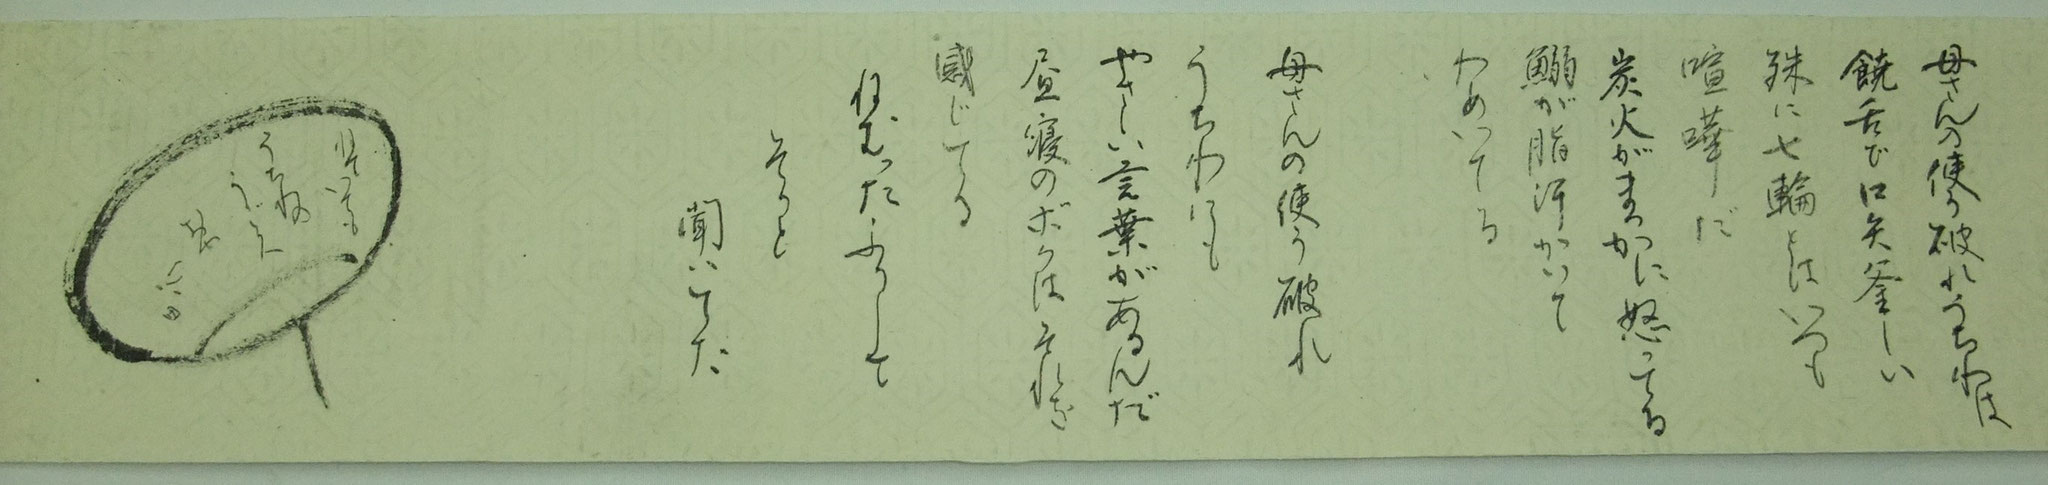 母さんの使う破れうちわは
饒舌で口矢釜しい
殊に七輪とはいつも
喧嘩だ
炭火がまっかに怒ってる
鰯が脂汗かいて
わめいてる
母さんの使う破れ
うちわにも
やさしい言葉があるんだ
昼寝のボクはそれを
感じてる
ねむったふりして
そっと
聞いてた
うちわ